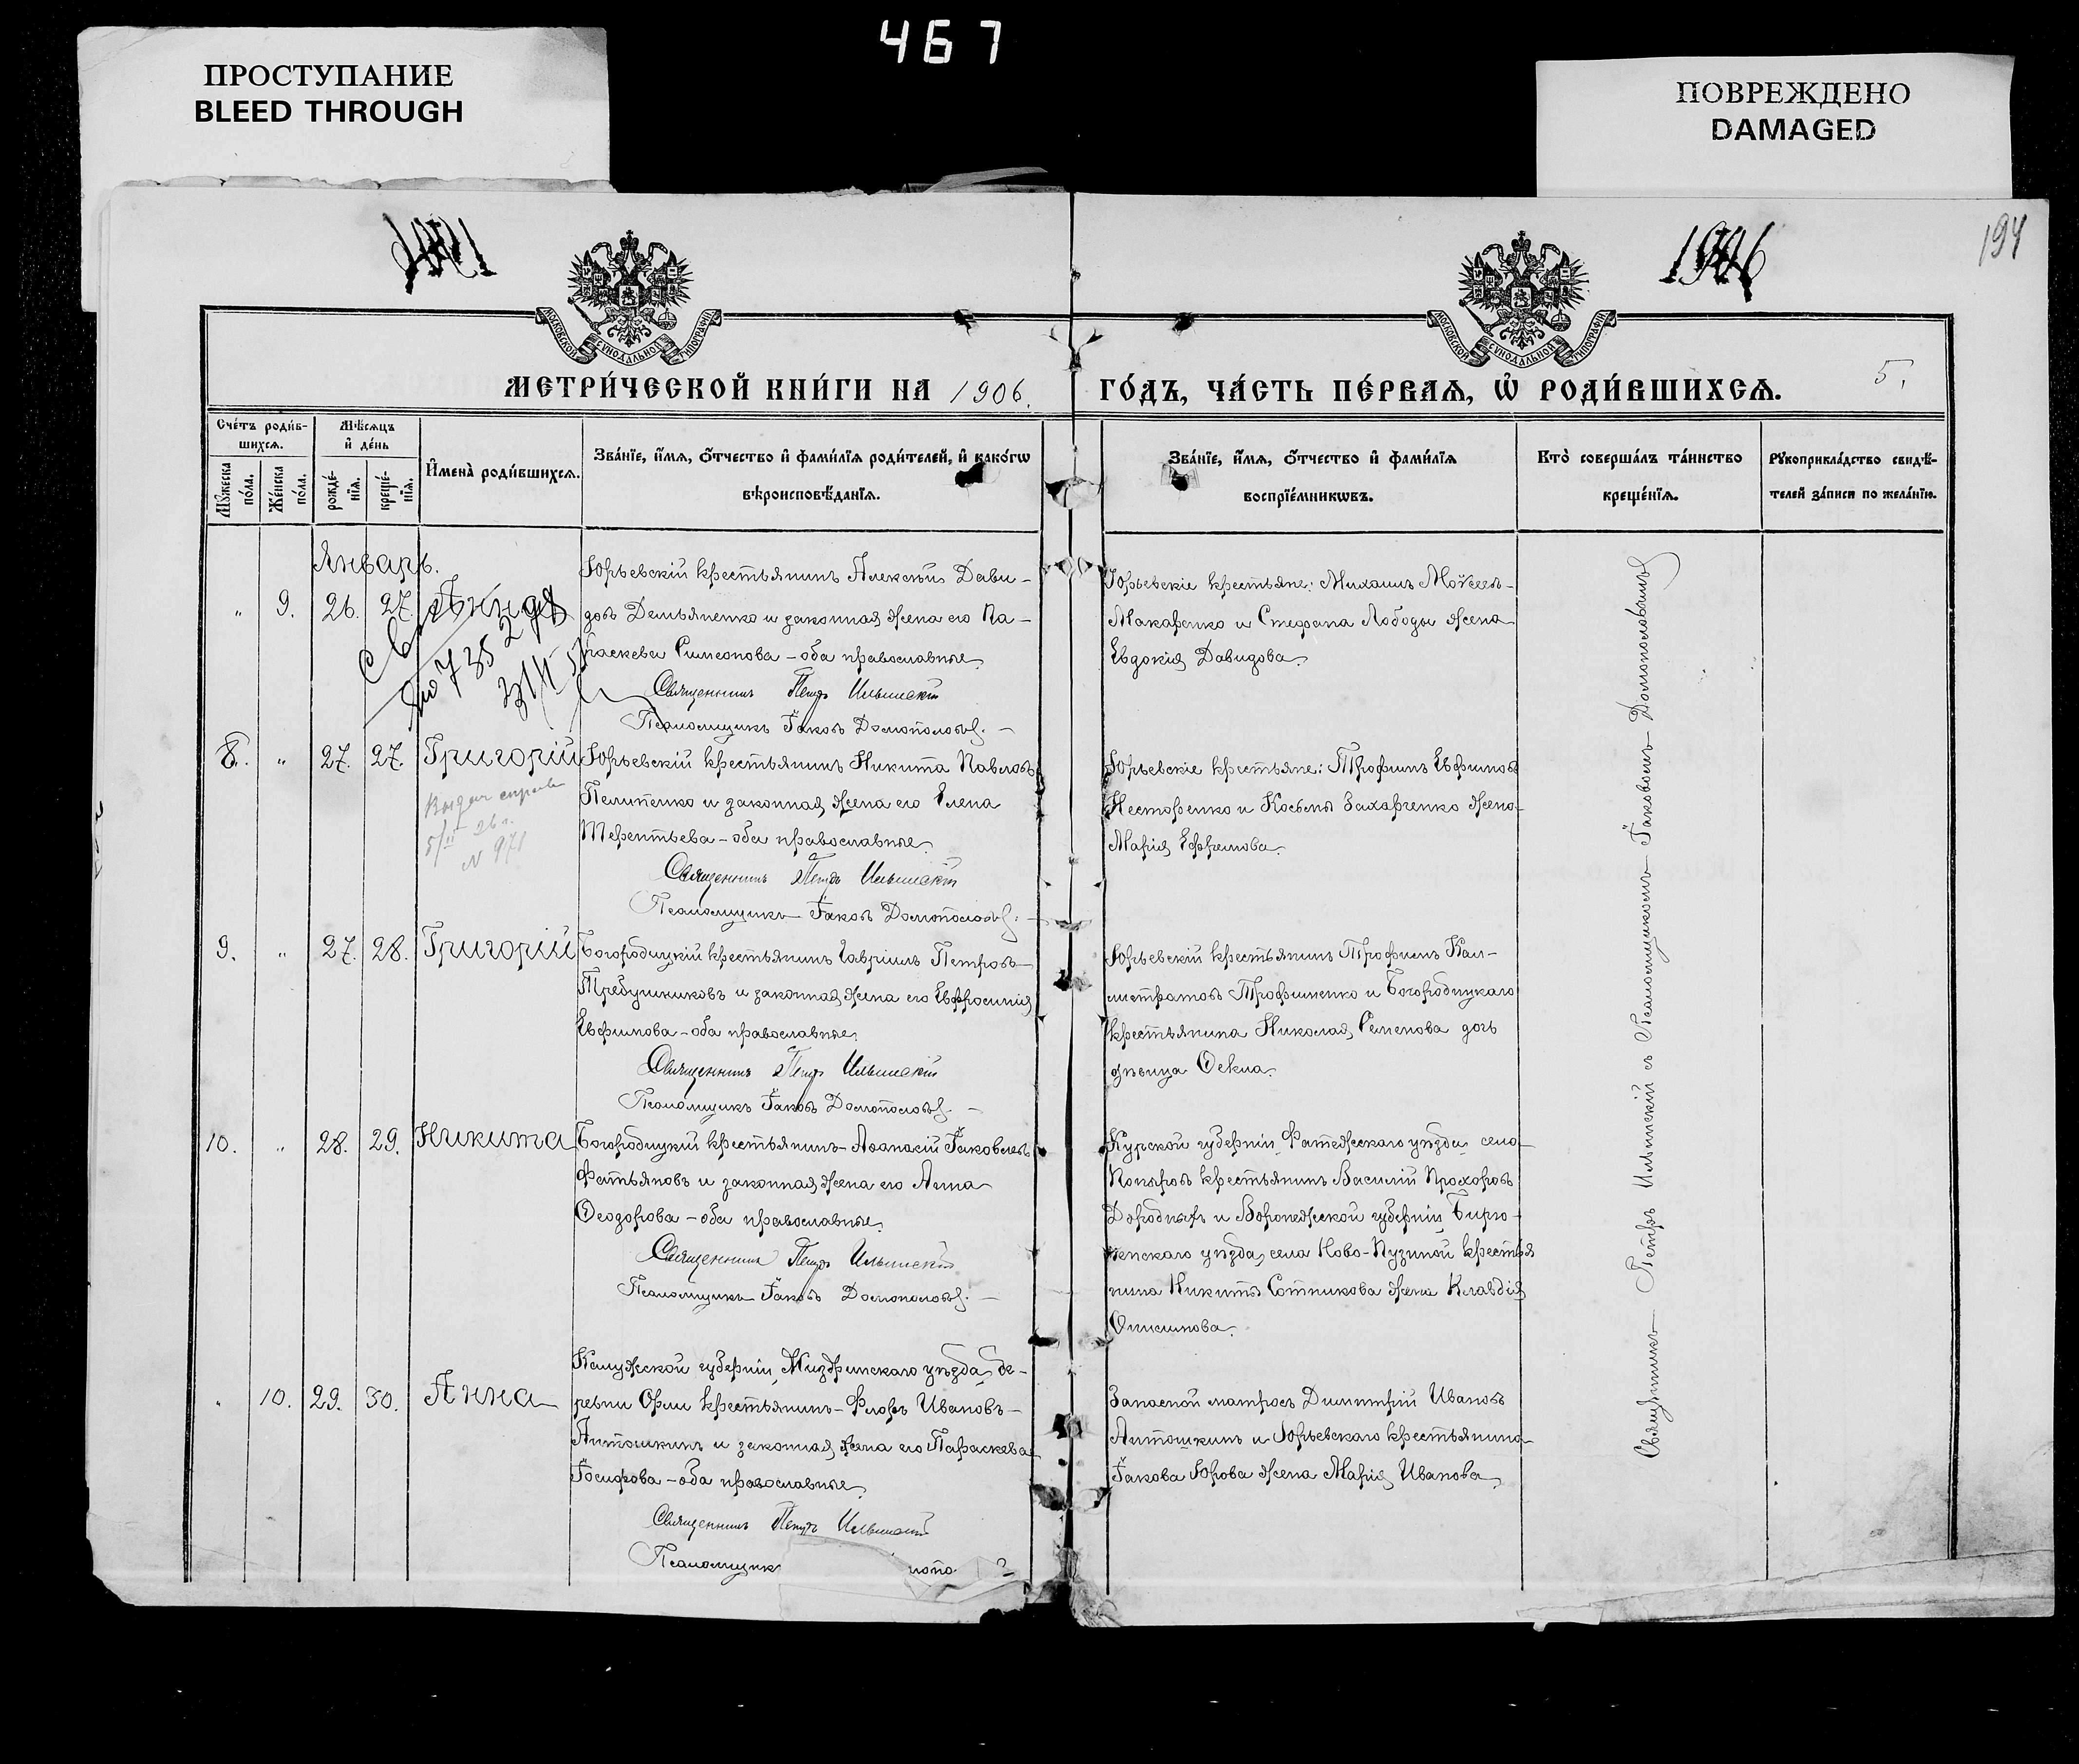 467
ПРОСТУПАНИЕ
BLEED THROUGH
ПОВРЕЖДЕНО
DAMAGED
1906
194
МОСКОВСКОЙ СѴНОДАЛЬНОЙ ТИПОГРАФІИ
МОСКОВСКОЙ СѴНОДАЛЬНОЙ ТИПОГРАФІИ
МЕТРИ́ЧЕСКОЙ КНИ́ГИ НА 1906. ГО́ДЪ, ЧА́СТЬ ПЕ́РВАѦ, Ѿ РОДИ́ВШИХСѦ.
5.
Сче́тъ роди́в-
шихсѧ.
Мꙋ́жеска по́ла.
Же́нска по́ла.
Мѣ́сѧцъ
и҆ де́нь
рожде́-
нїѧ.
креще́-
нїѧ.
И҆мена̀ роди́вшихсѧ.
Зва́нїе, и҆́мѧ, ѻ҆́тчество и҆ фами́лїѧ роди́телей, и҆ како́гѡ
вѣроисповѣ́данїѧ.
Зва́нїе, и҆́мѧ, ѻ҆́тчество и҆ фами́лїѧ
воспрїе́мникѡвъ.
Кто̀ соверша́лъ та́инство
креще́нїѧ.
Рꙋкоприкла́дство свидѣ́-
телей за́писи по жела́нїю.
Январь.
" 9. 26. 27. Анна
Юрьевскій крестьянинъ Алексѣй Дави-
довъ Демьяненко и законная жена его Па-
раскева Симеонова – оба православные.
Священникъ Петръ Ильинскій
Псаломщикъ Іаковъ
Юрьевскіе крестьяне: Михаилъ Моѵсеевъ
Макаренко и Стефана Лободы жена
Евдокія Давидова.
8. " 27. 27. Григорій
Юрьевскій крестьянинъ Никита Павловъ
Пелипенко и законная жена его Елена
Терентьева – оба православные.
Священникъ Петръ Ильинскій
Псаломщикъ Іаковъ
Юрьевскіе крестьяне: Трофимъ Евфимовъ
Несторенко и Косьмы Захарченко жена
Марія Ефремова.
9. " 27. 28. Григорій
Богородицкій крестьянинъ Гавріилъ Петровъ
Требушниковъ и законная жена его Евфросинія
Евфимова – оба православные.
Священникъ Петръ Ильинскій
Псаломщикъ Іаковъ
Юрьевскій крестьянинъ Трофимъ Кал-
листратовъ Трофименко и Богородицкаго
крестьянина Николая Семенова дочь
дѣвица Ѳекла.
10. " 28. 29. Никита
Богородицкій крестьянинъ Аѳанасій Іаковлевъ
Фатьяновъ и законная жена его Анна
Ѳеодорова – оба православные.
Священникъ Петръ Ильинскій
Псаломщикъ Іаковъ
Курской губерніи, Фатежскаго уѣзда, села
крестьянинъ Василій Прохоровъ
Дородныхъ и Воронежской губерніи, Бирю-
ченскаго уѣзда, села крестья-
нина Никиты Сотникова жена Клавдія
Онисимова.
" 10. 29. 30. Анна
Калужской губерніи, уѣзда, де-
ревни крестьянинъ Флоръ Ивановъ
Антошкинъ и законная жена его Параскева
Іосифова – оба православные.
Священникъ Петръ Ильинскій
Псаломщик
Запасной матросъ Димитрій Ивановъ
Антошкинъ и Юрьевскаго крестьянина
Іакова Юрова жена Марія Иванова.
Священникъ Петръ Ильинскій съ Псаломщикомъ Іаковомъ